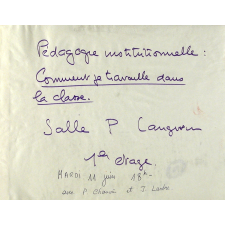 Pédagogie institutionnelle :
Comment je travaille dans
la classe.
Salle P Langevin
1er étage.
MARDI 11 juin 18h-
avec P. et J.